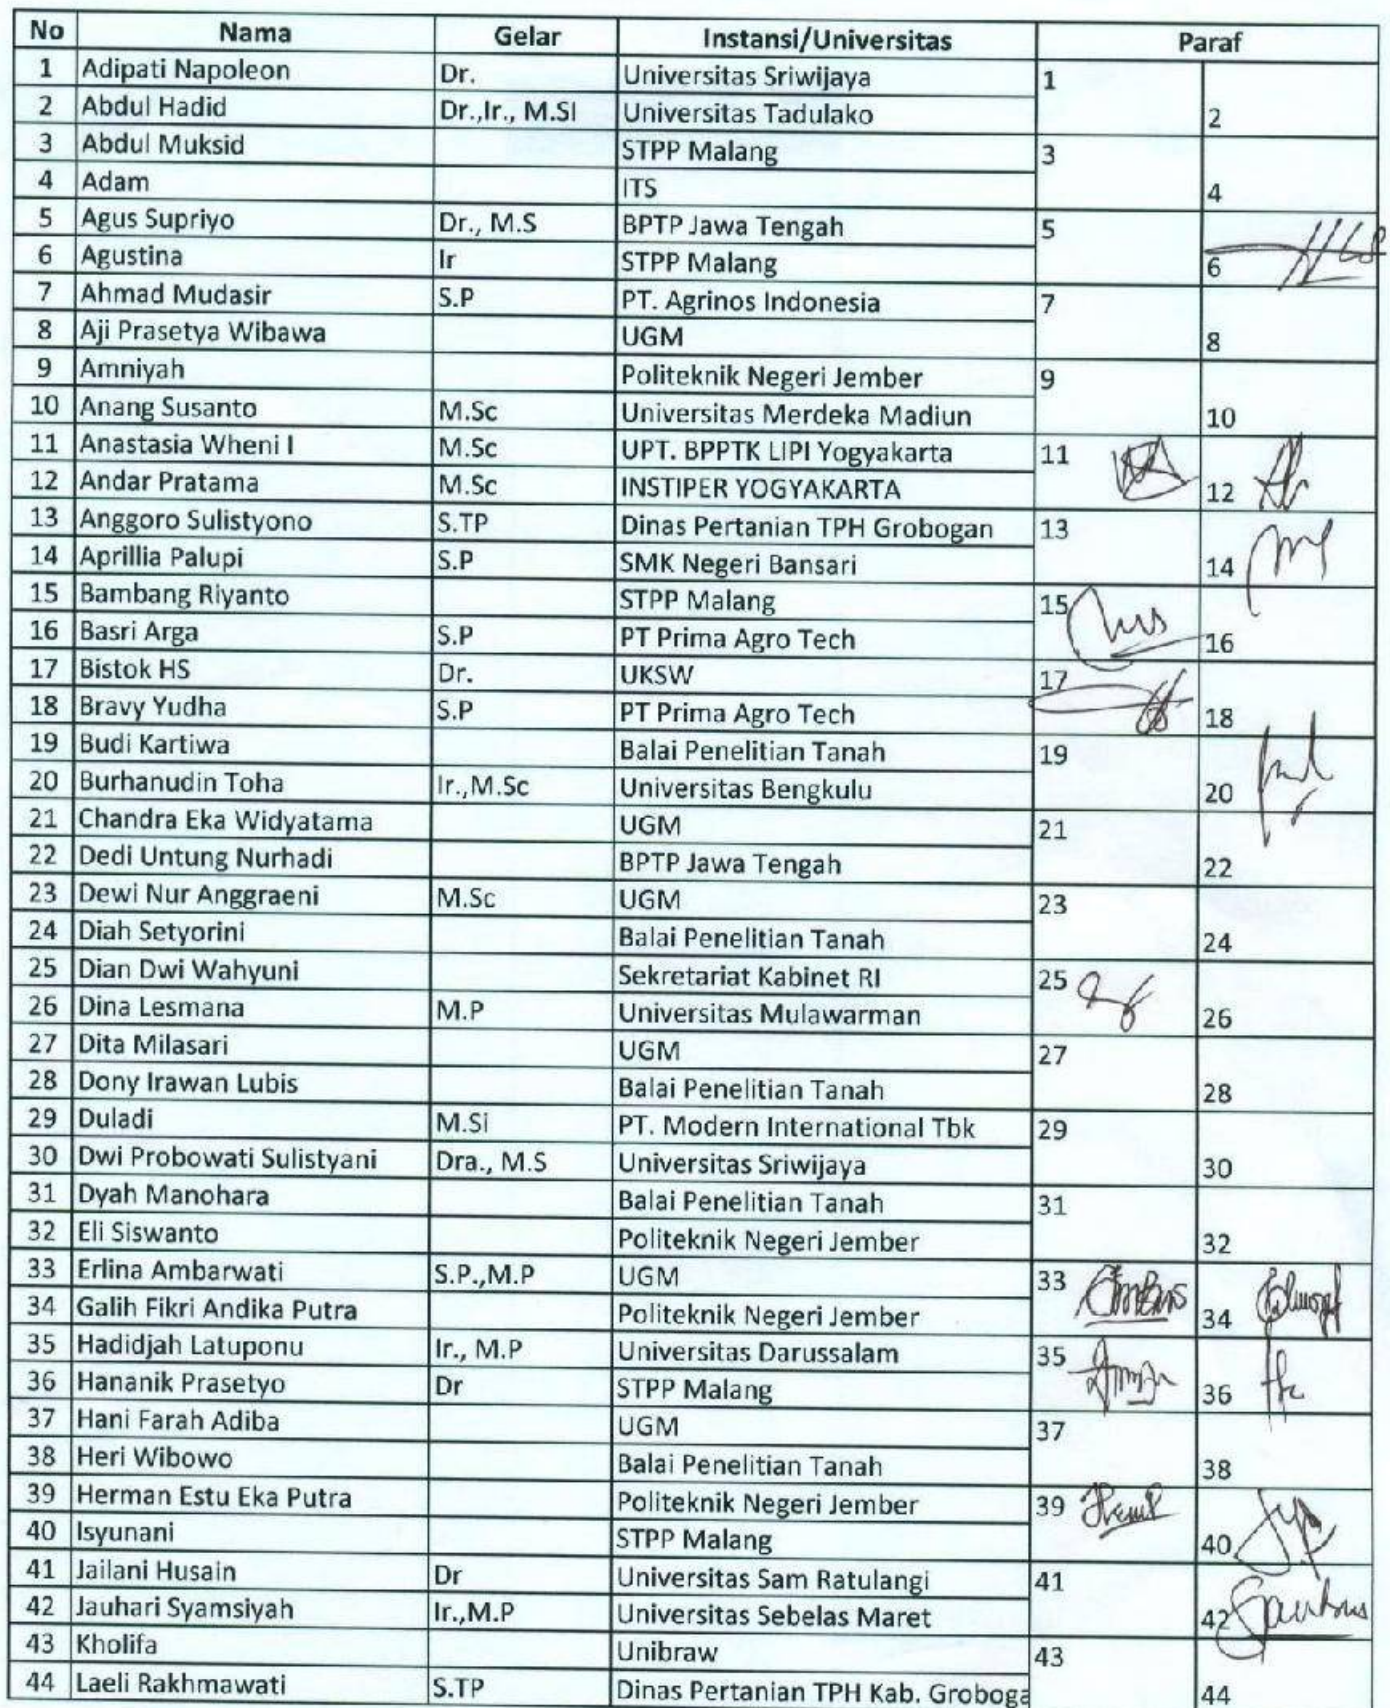 No Nama Gelar Instansi/Universitas Paraf
1 Adipati Napoleon Dr. Universitas Sriwijaya 1
2 Abdul Hadid Dr.,Ir., M.SI Universitas Tadulako 2
3 Abdul Muksid STPP Malang 3
4 Adam ITS 4
5 Agus Supriyo Dr., M.S BPTP Jawa Tengah 5
6 Agustina Ir STPP Malang 6
7 Ahmad Mudasir S.P PT. Agrinos Indonesia 7
8 Aji Prasetya Wibawa UGM 8
9 Amniyah Politeknik Negeri Jember 9
10 Anang Susanto M.Sc Universitas Merdeka Madiun 10
11 Anastasia Wheni I M.Sc UPT. BPPTK LIPI Yogyakarta 11
12 Andar Pratama M.Sc INSTIPER YOGYAKARTA 12
13 Anggoro Sulistyono S.TP Dinas Pertanian TPH Grobogan 13
14 Aprillia Palupi S.P SMK Negeri Bansari 14
15 Bambang Riyanto STPP Malang 15
16 Basri Arga S.P PT Prima Agro Tech 16
17 Bistok HS Dr. UKSW 17
18 Bravy Yudha S.P PT Prima Agro Tech 18
19 Budi Kartiwa Balai Penelitian Tanah 19
20 Burhanudin Toha Ir.,M.Sc Universitas Bengkulu 20
21 Chandra Eka Widyatama UGM 21
22 Dedi Untung Nurhadi BPTP Jawa Tengah 22
23 Dewi Nur Anggraeni M.Sc UGM 23
24 Diah Setyorini Balai Penelitian Tanah 24
25 Dian Dwi Wahyuni Sekretariat Kabinet RI 25
26 Dina Lesmana M.P Universitas Mulawarman 26
27 Dita Milasari UGM 27
28 Dony Irawan Lubis Balai Penelitian Tanah 28
29 Duladi M.Si PT. Modern International Tbk 29
30 Dwi Probowati Sulistyani Dra., M.S Universitas Sriwijaya 30
31 Dyah Manohara Balai Penelitian Tanah 31
32 Eli Siswanto Politeknik Negeri Jember 32
33 Erlina Ambarwati S.P.,M.P UGM 33
34 Galih Fikri Andika Putra Politeknik Negeri Jember 34
35 Hadidjah Latuponu Ir., M.P Universitas Darussalam 35
36 Hananik Prasetyo Dr STPP Malang 36
37 Hani Farah Adiba UGM 37
38 Heri Wibowo Balai Penelitian Tanah 38
39 Herman Estu Eka Putra Politeknik Negeri Jember 39
40 Isyunani STPP Malang 40
41 Jailani Husain Dr Universitas Sam Ratulangi 41
42 Jauhari Syamsiyah Ir.,M.P Universitas Sebelas Maret 42
43 Kholifa Unibraw 43
44 Laeli Rakhmawati S.TP Dinas Pertanian TPH Kab. Groboga 44